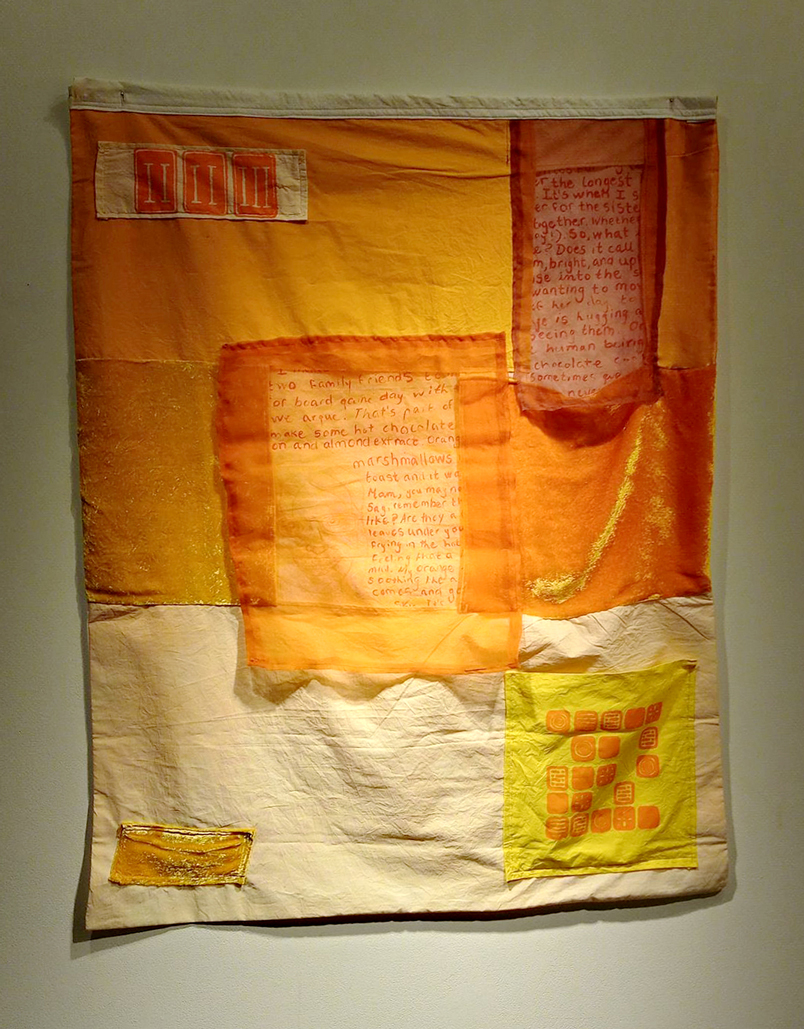 II II III
er the longest
It's what I s
er for the siste
together. Whether
So, what
e? Does it call
m, bright, and up
use into the s
wanting to mov
of her day to
ve is hugging a
seeing them. Or
human being
chocolate
sometimes
neve
two family friends
or board game day with
we argue. That's part of
make some hot chocolate
on and almond extract. Orang
marshmallows
toast and it wa
Mam, you may no
say, remember th
like? Are they a
leaves under you
frying in the hot
feeling that a
mad. My orange
soothing like a
comes. And